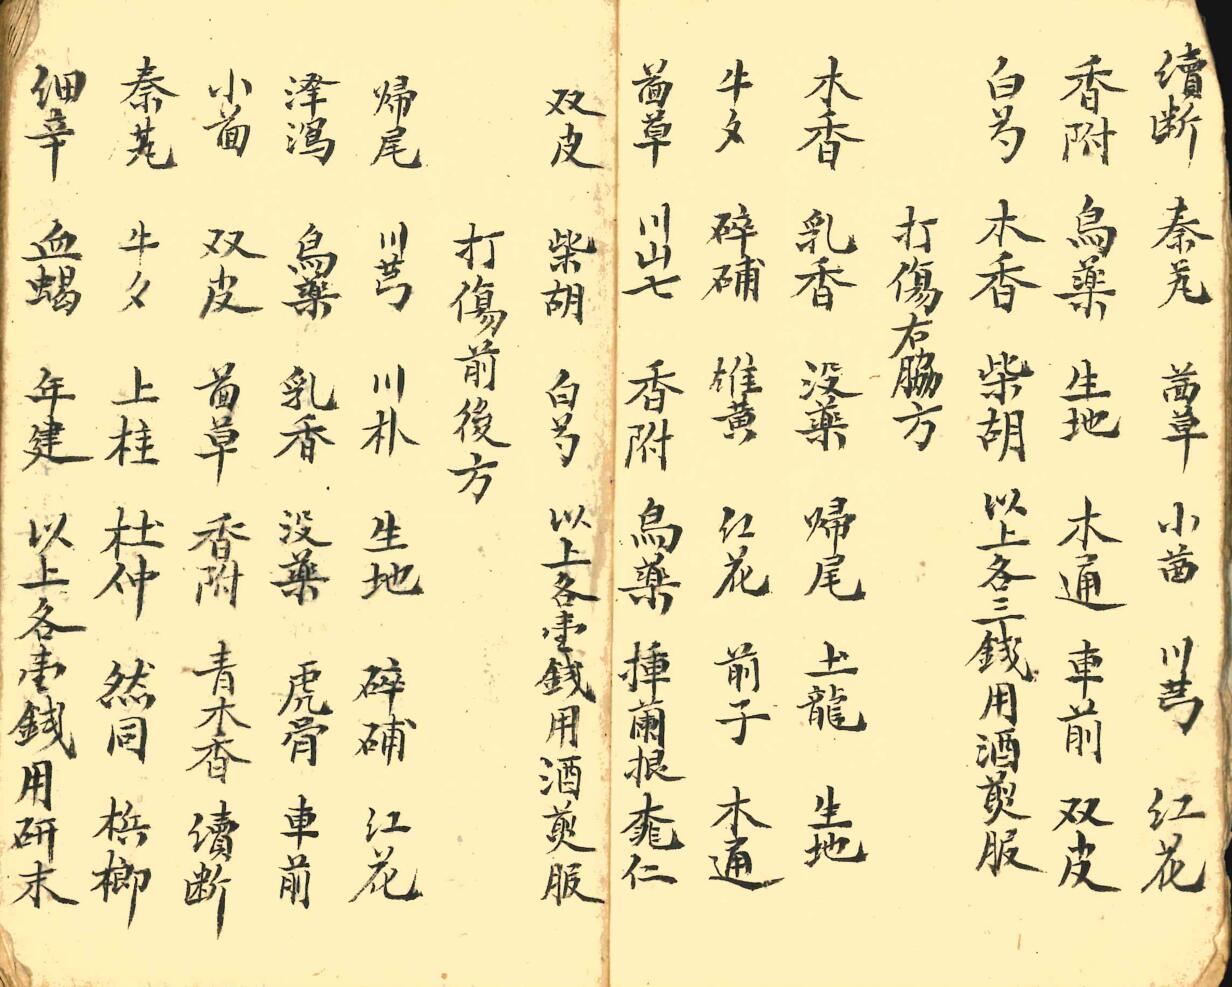 續断 秦艽 茜草 小茴 川芎 红花
香附 烏藥 生地 木通 車前 双皮
白芍 木香 柴胡 以上各三銭用酒煎服
打傷右脇方
木香 乳香 没藥 帰尾 土龍 生地
牛夕 碎補 雄黄 红花 前子 木通
茜草 川山七 香附 烏藥 根 桃仁
双皮 柴胡 白芍 以上各壹銭用酒煎服
打傷前後方
帰尾 川芎 川朴 生地 碎補 红花
泽瀉 烏藥 乳香 没藥 虎骨 車前
小茴 双皮 茜草 香附 青木香 續断
秦艽 牛夕 上桂 杜仲 然同 梹榔
细辛 血蝎 年建 以上各壹銭用研末